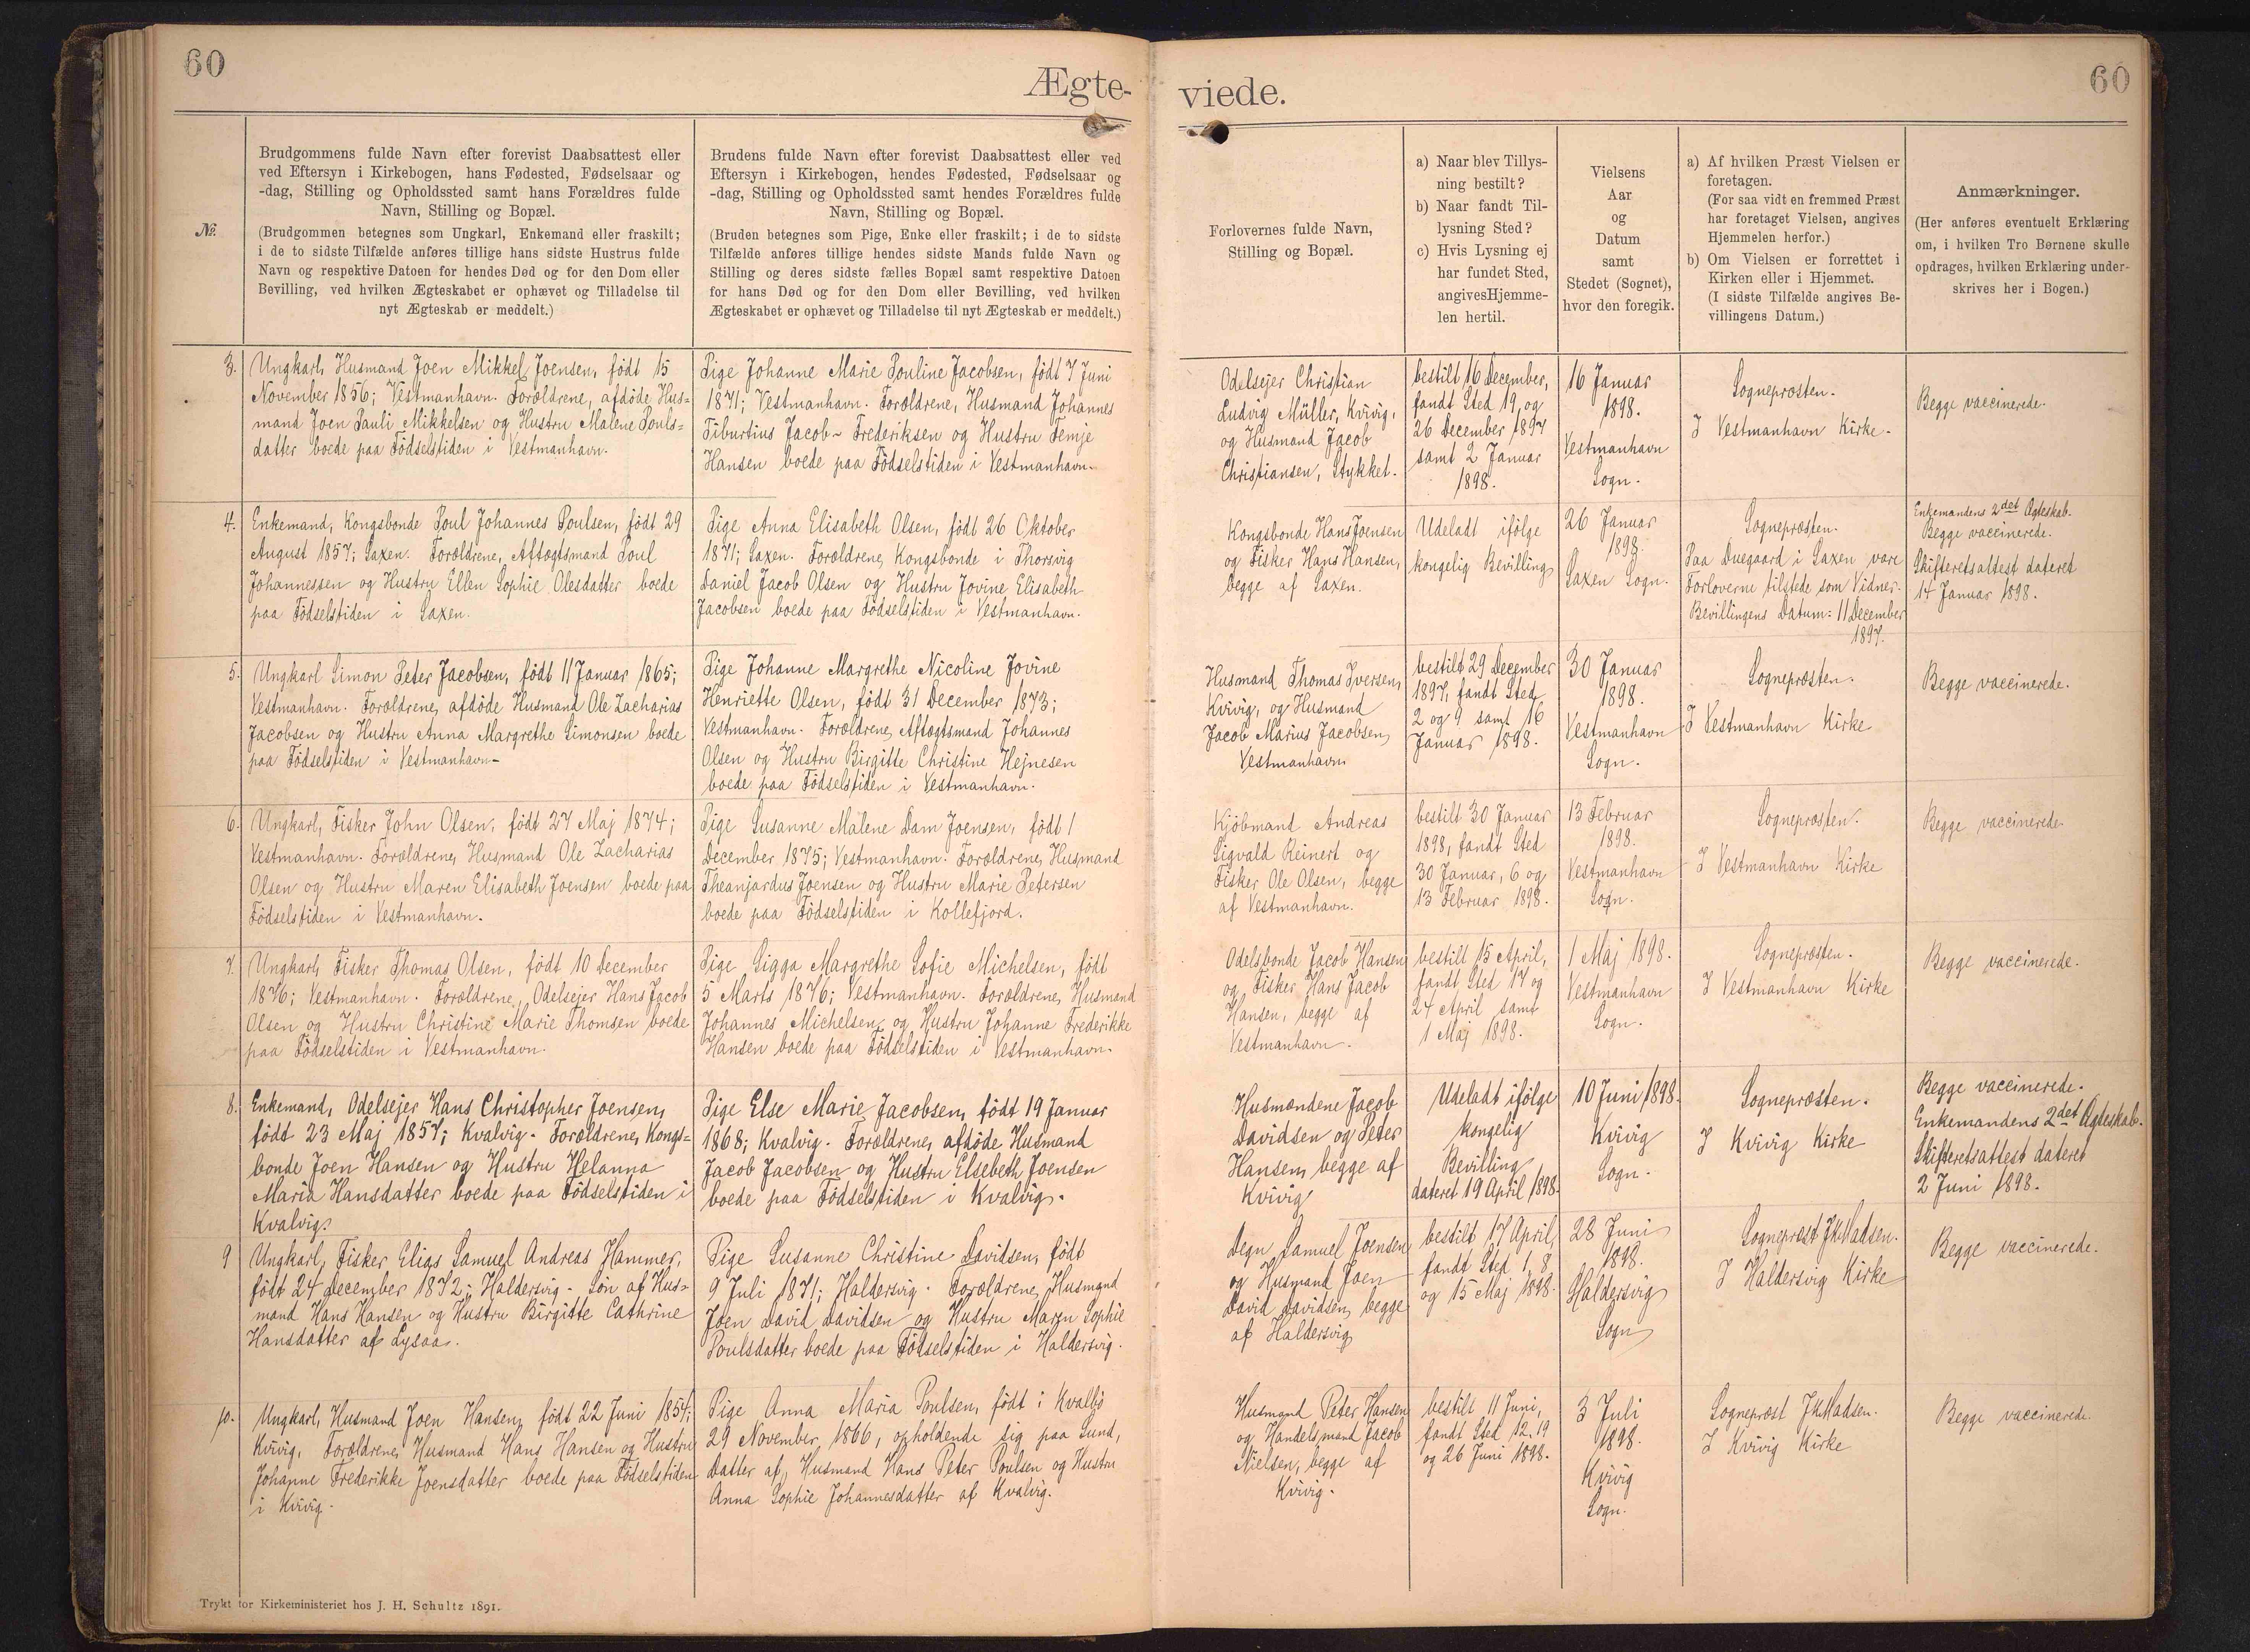 60
Ægte-
№.
Brudgommens fulde Navn efter forevist Daabsattest eller
ved Eftersyn i Kirkebogen, hans Fødested, Fødselsaar og
-dag, Stilling og Opholdssted samt hans Forældres fulde
Navn, Stilling og Bopæl.
(Brudgommen betegnes som Ungkarl, Enkemand eller fraskilt;
i de to sidste Tilfælde anføres tillige hans sidste Hustrus fulde
Navn og respektive Datoen for hendes Død og for den Dom eller
Bevilling, ved hvilken Ægteskabet er ophævet og Tilladelse til
nyt Ægteskab er meddelt.)
Brudens fulde Navn efter forevist Daabsattest eller ved
Eftersyn i Kirkebogen, hendes Fødested, Fødselsaar og
-dag, Stilling og Opholdssted samt hendes Forældres fulde
Navn, Stilling og Bopæl.
(Bruden betegnes som Pige, Enke eller fraskilt; i de to sidste
Tilfælde anføres tillige hendes sidste Mands fulde Navn og
Stilling og deres sidste fælles Bopæl samt respektive Datoen
for hans Død og for den Dom eller Bevilling, ved hvilken
Ægteskabet er ophævet og Tilladelse til nyt Ægteskab er meddelt.)
3.
Ungkarl, Husmand Joen Mikkel Joensen, født 15
November 1856; Vestmanhavn. Forældrene, afdöde Hus=
mand Joen Pauli Mikkelsen og Hustru Malene Pouls=
datter boede paa Födselstiden i Vestmanhavn.
Pige Johanne Marie Pouline Jacobsen, født 7 Juni
1871; Vestmanhavn. Forældrene, Husmand Johannes
Tiburtius Jacob~ Frederiksen og Hustru Femje
Hansen boede paa Födselstiden i Vestmanhavn.
4.
Enkemand, Kongsbonde Poul Johannes Poulsen, født 29
August 1857; Saxen. Forældrene, Aftægtsmand Poul
Johannessen og Hustru Ellen Sophie Olesdatter boede
paa Födselstiden i Saxen.
Pige Anna Elisabeth Olsen, født 26 Oktober
1871; Saxen. Forældrene, Kongsbonde i Thorsvig
Daniel Jacob Olsen og Hustru Jovine Elisabeth
Jacobsen boede paa Födselstiden i Vestmanhavn.
5.
Ungkarl Simon Peter Jacobsen, født 11 Januar 1865;
Vestmanhavn. Forældrene, afdöde Husmand Ole Zacharias
Jacobsen og Hustru Anna Margrethe Simonsen boede
paa Födselstiden i Vestmanhavn-
Pige Johanne Margrethe Nicoline Jovine
Henriette Olsen, født 31 December 1873;
Vestmanhavn. Forældrene, Aftægtsmand Johannes
Olsen og Hustru Birgitte Christine Hejnesen
boede paa Födselstiden i Vestmanhavn.
6.
Ungkarl, Fisker John Olsen, født 27 Maj 1874;
Vestmanhavn. Forældrene, Husmand Ole Zacharias
Olsen og Hustru Maren Elisabeth Joensen boede paa
Födselstiden i Vestmanhavn.
Pige Susanne Malene Dam Joensen, født 1
December 1875; Vestmanhavn. Forældrene, Husmand
Theanjardus Joensen og Hustru Marie Petersen
boede paa Födselstiden i Kollefjord.
7.
Ungkarl, Fisker Thomas Olsen, født 10 December
1876; Vestmanhavn. Forældrene, Odelsejer Hans Jacob
Olsen og Hustru Christine Marie Thomsen boede
paa Födselstiden i Vestmanhavn.
Pige Sigga Margrethe Sofie Michelsen, født
5 Marts 1876; Vestmanhavn. Forældrene, Husmand
Johannes Michelsen og Hustru Johanne Frederikke
Hansen boede paa Födselstiden i Vestmanhavn.
8.
Enkemand, Odelsejer Hans Christopher Joensen,
født 23 Maj 1857; Kvalvig. Forældrene, Kongs=
bonde Joen Hansen og Hustru Helanna
Maria Hansdatter boede paa Födselstiden i
Kvalvig.
Pige Else Marie Jacobsen, født 19 Januar
1868; Kvalvig. Forældrene, afdöde Husmand
Jacob Jacobsen og Hustru Elsebeth Joensen
boede paa Födselstiden i Kvalvig.
9
Ungkarl, Fisker Elias Samuel Andreas Hammer,
født 24 December 1872; Haldersvig - Søn af Hus=
mand Hans Hansen og Hustru Birgitte Cathrine
Hansdatter af Lysaa.
Pige Susanne Christine Davidsen, født
9 Juli 1871; Haldersvig. Forældrene, Husmand
Joen David Davidsen og Hustru Maren Sophie
Poulsdatter boede paa Födselstiden i Haldersvig.
10.
Ungkarl, Husmand Joen Hansen, født 22 Juni 1854;
Kvivig, Forældrene, Husmand Hans Hansen og Hustru
Johanne Frederikke Joensdatter boede paa Födselstiden
i Kvivig.
Pige Anna Maria Poulsen, født i
29 November 1866, opholdende sig paa Sund,
Datter af, Husmand Hans Peter Poulsen og Hustru
Anna Sophie Johannesdatter af Kvalvig.
Trykt for Kirkeministeriet hos J. H. Schultz 1891.
viede.
60
Forlovernes fulde Navn,
Stilling og Bopæl.
a) Naar blev Tillys-
ning bestilt?
b) Naar fandt Til-
lysning Sted?
c) Hvis Lysning ej
har fundet Sted,
angives Hjemme-
len hertil.
Vielsens
Aar
og
Datum
samt
Stedet (Sognet),
hvor den foregik.
a) Af hvilken Præst Vielsen er
foretagen.
(For saa vidt en fremmed Præst
har foretaget Vielsen, angives
Hjemmelen herfor.)
b) Om Vielsen er forrettet i
Kirken eller i Hjemmet.
(I sidste Tilfælde angives Be-
villingens Datum.)
Anmærkninger.
(Her anføres eventuelt Erklæring
om, i hvilken Tro Børnene skulle
opdrages, hvilken Erklæring under-
skrives her i Bogen.)
Odelsejer Christian
Ludvig Müller, Kvivig,
og Husmand Jacob
Christiansen, Stykket.
bestilt 16 December,
fandt Sted 19, og
26 December 1897
samt 2 Januar
1898.
16 Januar
1898.
Vestmanhavn
Sogn.
Sognepræsten.
I Vestmanhavn Kirke.
Begge vaccinerede.
Kongsbonde Hans Joensen
og Fisker Hans Hansen,
begge af Saxen.
Udeladt ifölge
kongelig Bevilling
26 Januar
1898.
Saxen Sogn.
Sognepræsten.
Paa Duegaard i Saxen vare
Forloverne tilstede som Vidner.
Bevillingens Datum: 11 December
1897.
Enkemandens 2det Ægteskab.
Begge vaccinerede.
Skifteretsattest dateret
14 Januar 1898.
Husmand Thomas Iversen,
Kvivig, og Husmand
Jacob Marius Jacobsen,
Vestmanhavn
bestilt 29 December
1897, fandt Sted
2 og 9 samt 16
Januar 1898.
30 Januar
1898.
Vestmanhavn
Sogn.
Sognepræsten.
I Vestmanhavn Kirke
Begge vaccinerede.
Kjöbmand Andreas
Sigvald Reinert og
Fisker Ole Olsen, begge
af Vestmanhavn.
bestilt 30 Januar
1898, fandt Sted
30 Januar, 6 og
13 Februar 1898.
13 Februar
1898.
Vestmanhavn
Sogn.
Sognepræsten.
I Vestmanhavn Kirke
Begge vaccinerede.
Odelsbonde Jacob Hansen
og Fisker Hans Jacob
Hansen, begge af
Vestmanhavn.
bestilt 15 April,
fandt Sted 17 og
24 April samt
1 Maj 1898.
1 Maj 1898.
Vestmanhavn
Sogn.
Sognepræsten.
I Vestmanhavn Kirke
Begge vaccinerede.
Husmændene Jacob
Davidsen og Peter
Hansen, begge af
Kvivig
Udeladt ifölge
kongelig
Bevilling
dateret 19 April 1898.
10 Juni 1898.
Kvivig
Sogn.
Sognepræsten.
I Kvivig Kirke
Begge vaccinerede.
Enkemandens 2det Ægteskab.
Skifteretsattest dateret
2 Juni 1898.
Degn Samuel Joensen
og Husmand Joen
David Davidsen, begge
af Haldersvig
bestilt 17 April,
fandt Sted 1, 8
og 15 Maj 1898.
28 Juni
1898.
Haldersvig
Sogn
Sognepræst J K Madsen.
I Haldersvig Kirke
Begge vaccinerede.
Husmand Peter Hansen
og Handelsmand Jacob
Nielsen, begge af
Kvivig.
bestilt 11 Juni,
fandt Sted 12, 19
og 26 Juni 1898.
3 Juli
1898.
Kvivig
Sogn.
Sognepræst J K Madsen.
I Kvivig Kirke
Begge vaccinerede.